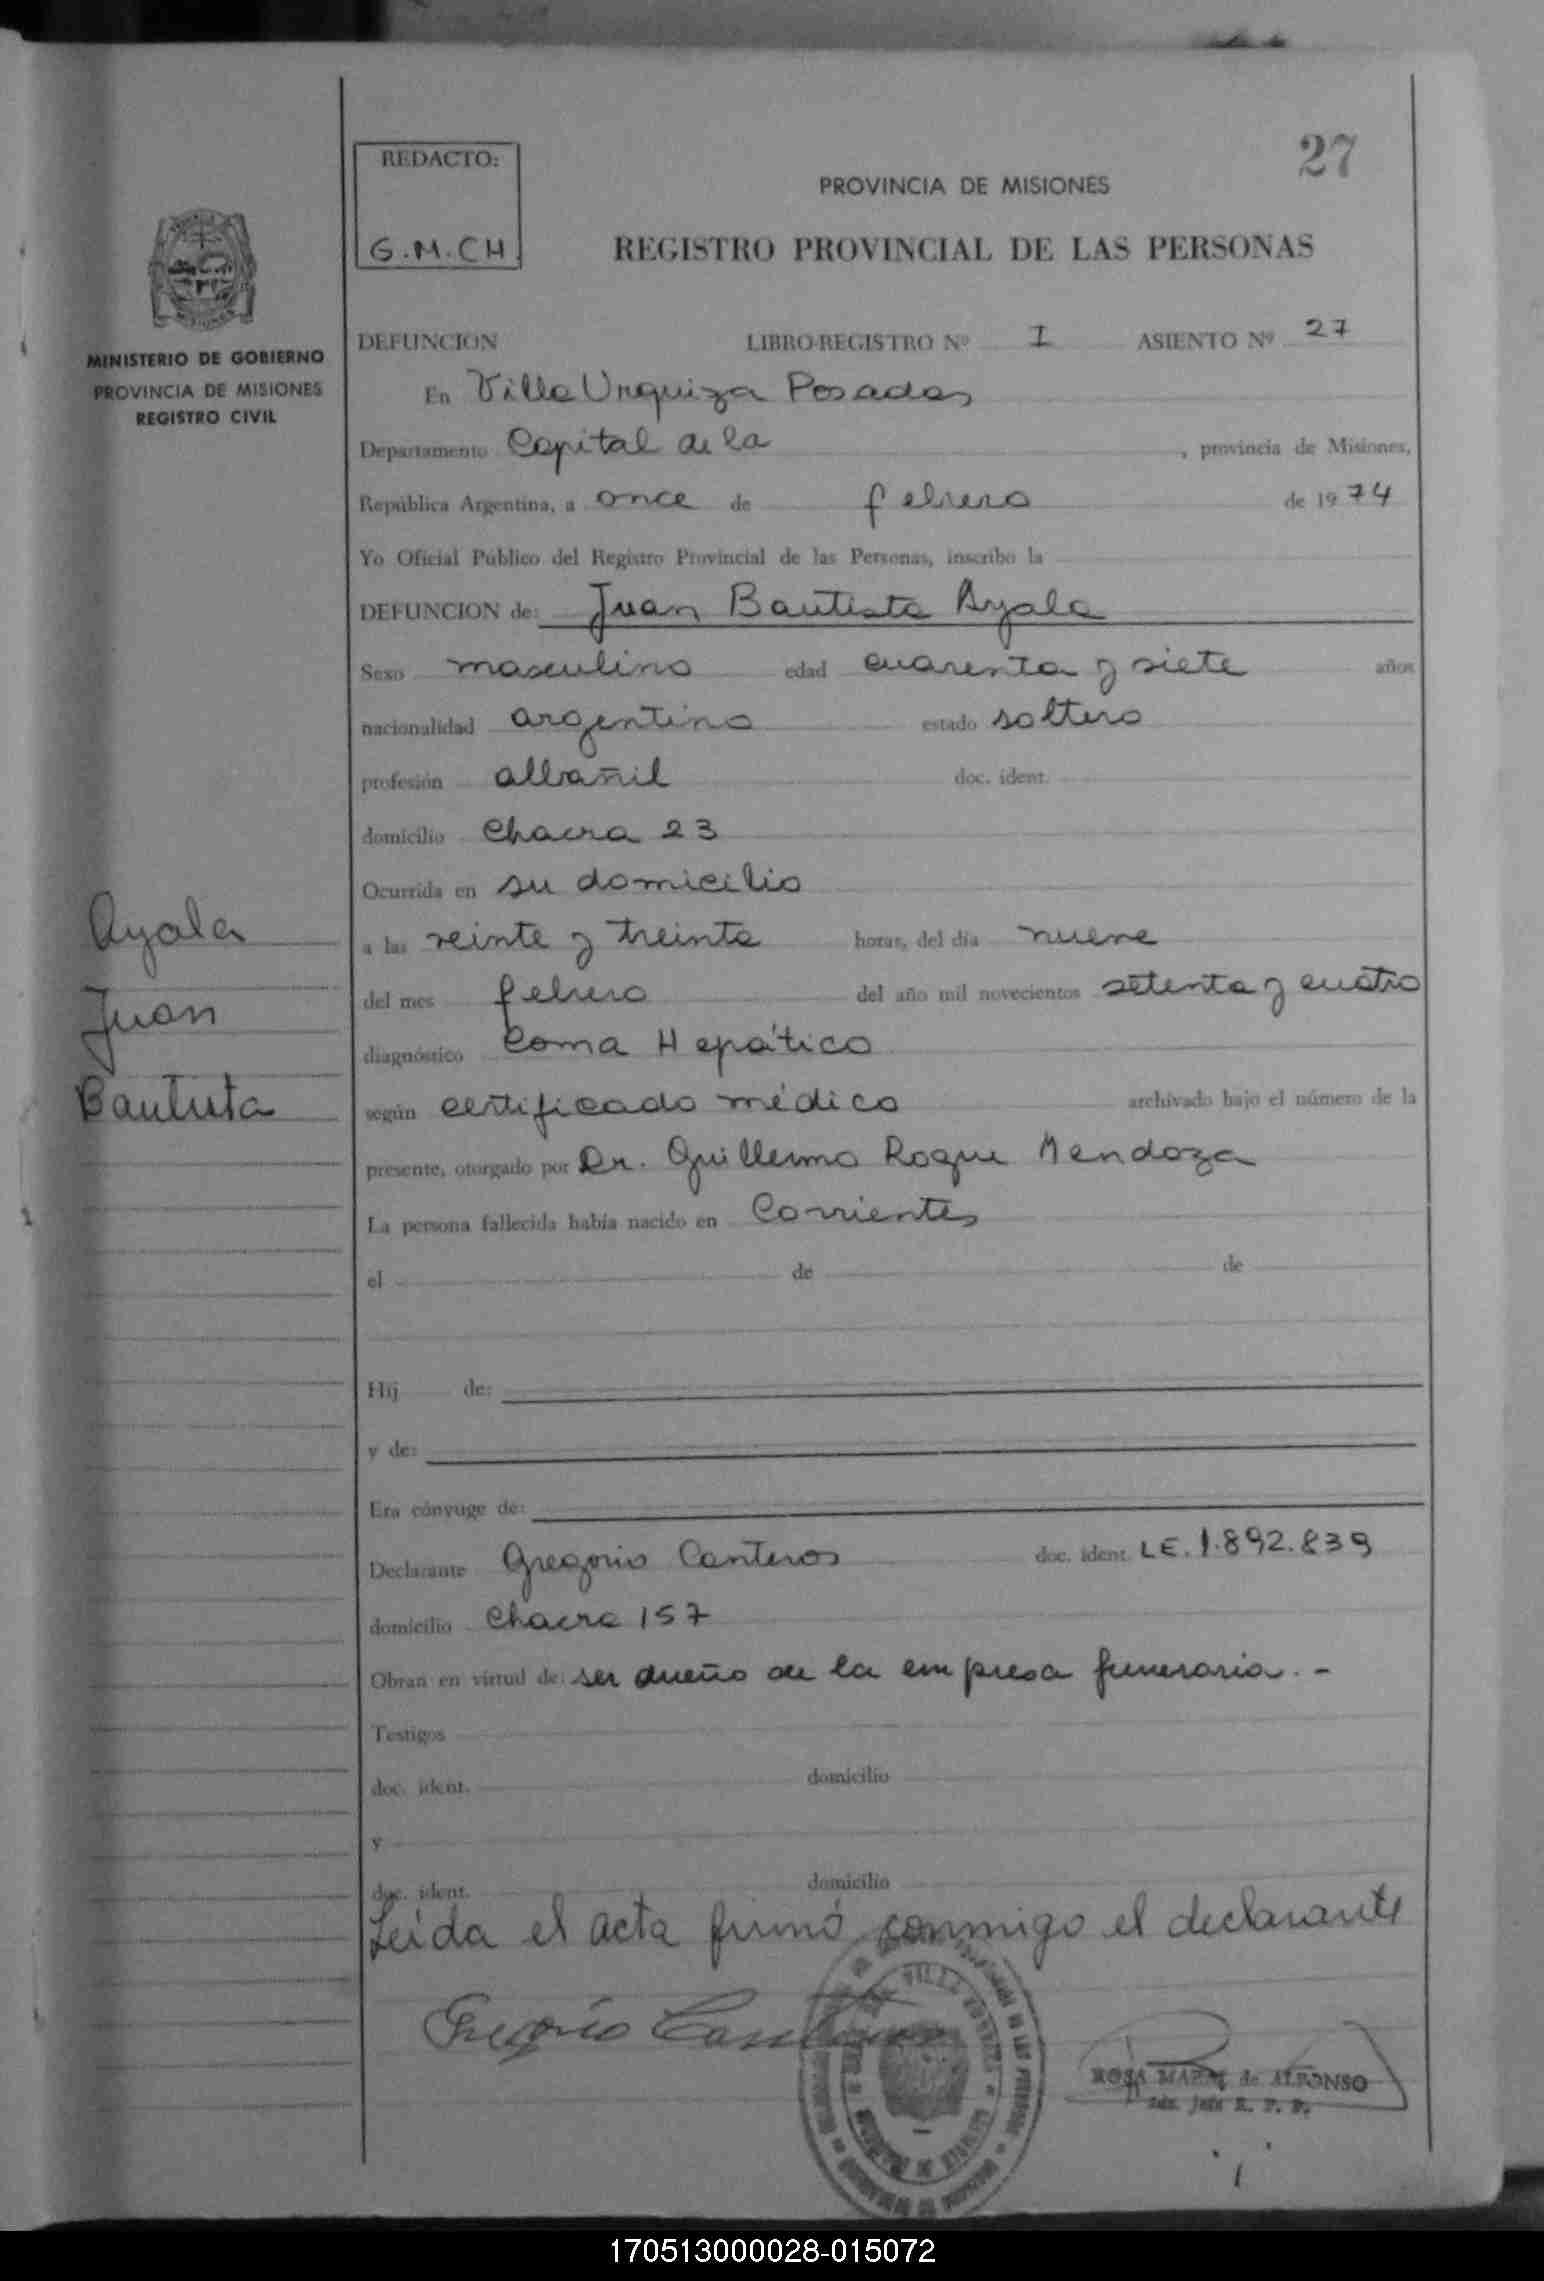 27
REDACTO:
G.M.CH
PROVINCIA DE MISIONES
REGISTRO PROVINCIAL DE LAS PERSONAS
MISIONES
MINISTERIO DE GOBIERNO
PROVINCIA DE MISIONES
REGISTRO CIVIL
DEFUNCION LIBRO-REGISTRO Nº I ASIENTO Nº 27
En Villa Urquiza Posadas
Departamento Capital de la, provincia de Misiones,
República Argentina, a once de febrero de 1974
Yo Oficial Público del Registro Provincial de las Personas, inscribo la
DEFUNCION de: Juan Bautista Ayala
Sexo masculino edad cuarenta y siete años
nacionalidad argentino estado soltero
profesión albañil doc. ident.
domicilio Chacra 23
Ocurrida en su domicilio
a las veinte y treinta horas, del día nueve
del mes febrero del año mil novecientos setenta y cuatro
diagnóstico Coma Hepático
según certificado médico archivado bajo el número de la
presente, otorgado por Dr. Guillermo Roque Mendoza
La persona fallecida había nacido en Corrientes
el de de
Hij de:
y de:
Era cónyuge de:
Declarante Gregorio Canteros doc. ident. LE. 1.892.839
domicilio Chacra 157
Obran en virtud de: ser dueño de la empresa funeraria. -
Testigos
doc. ident. domicilio
y
doc. ident. domicilio
Leída el acta firmó conmigo el declarante
Gregorio Canteros
ROSA MARIA de ALFONSO
Jefe R. P. P.
Ayala
Juan
Bautista
170513000028-015072